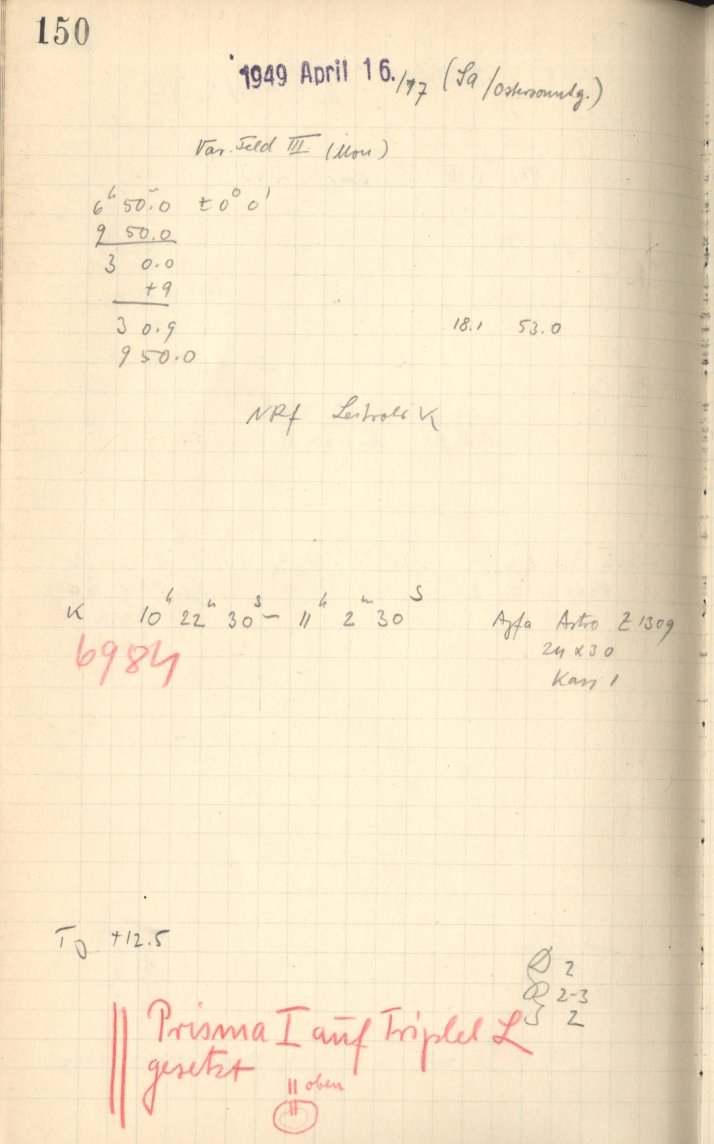 150
1949 April 16./17 (Sa/Ostersonntg.)
Var. Feld III (Mon)
6h 50m.0 ± 0° 0'
9 50.0
3 0.0
+9
3 0.9 18.1 53.0
9 50.0
NRf K
K 10h 22m 30s – 11h 2m 30s Agfa Astro Z 1309
6984 24 x 30
Kass 1
T +12.5
D 2
R 2-3
S 2
Prisma I auf Triplet L
gesetzt
oben